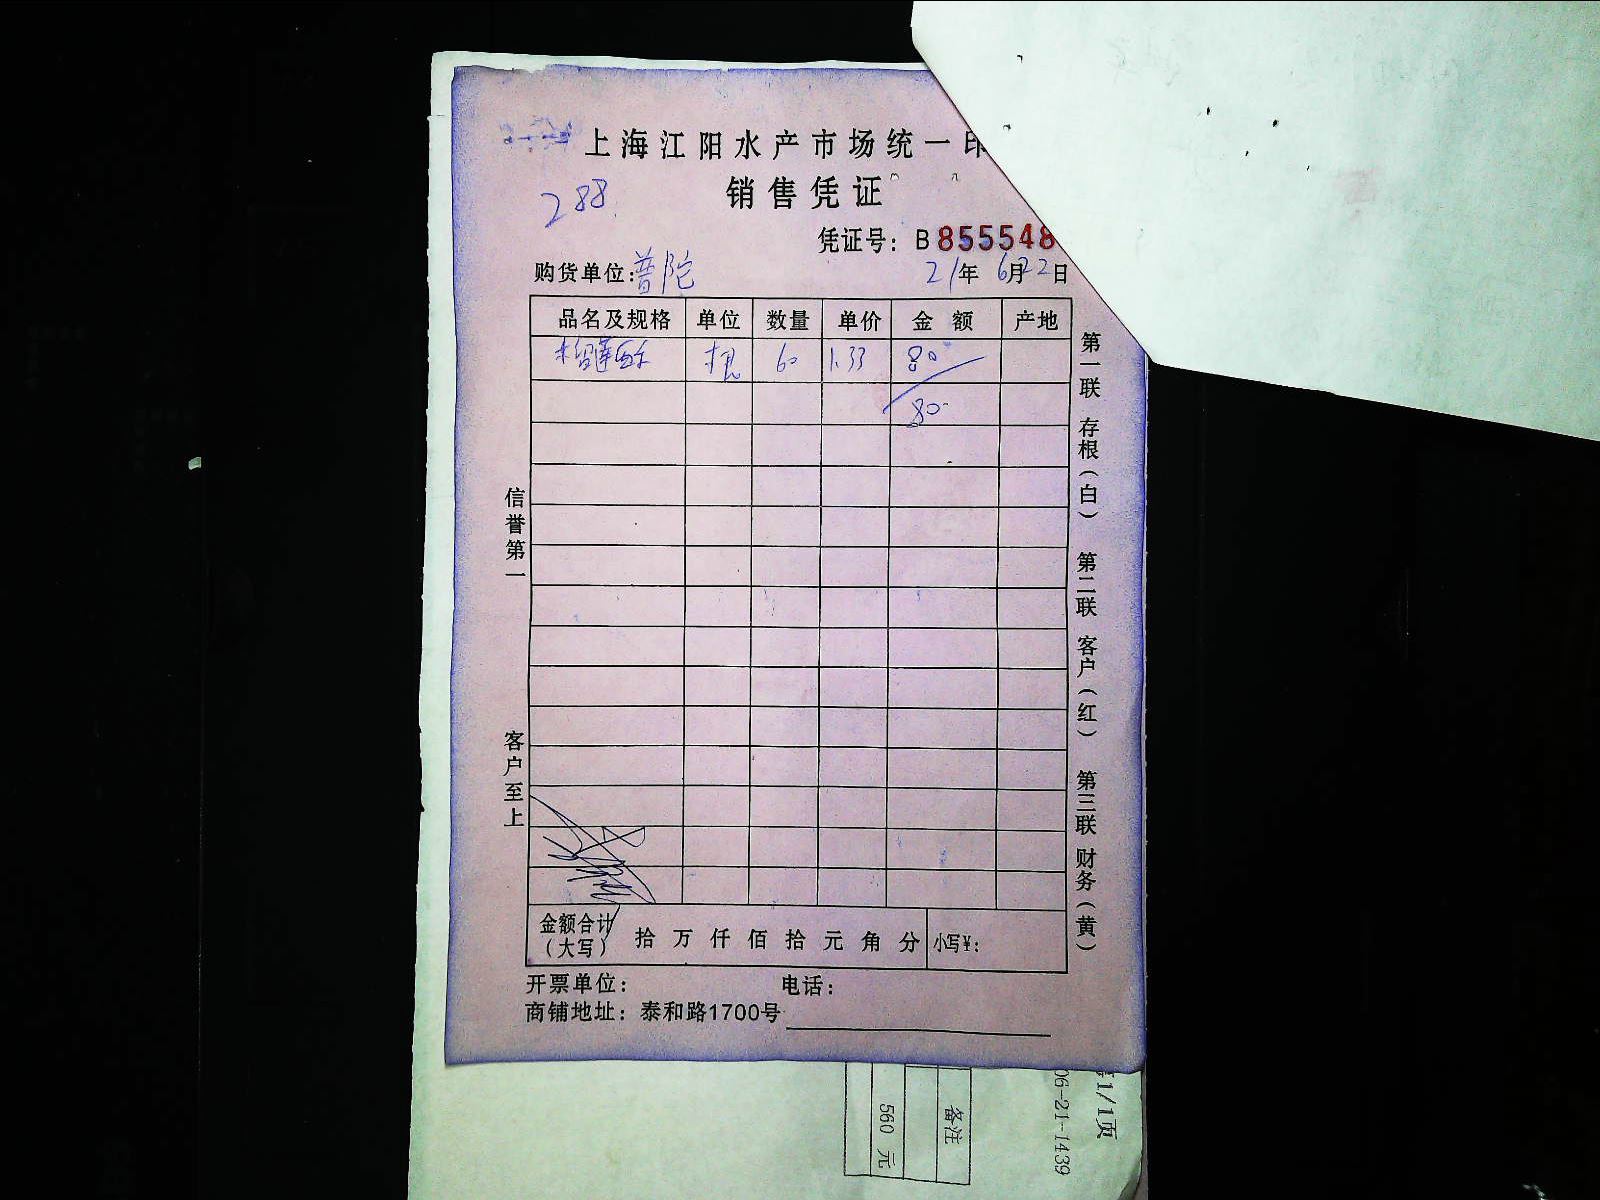 上海江阳水产市场统一印
销售凭证
288
凭证号：B 855548
购货单位：普陀 21年6月22日
品名及规格 单位 数量 单价 金额 产地
榴莲酥 根 60 1.33 80
80-
信誉第一
客户至上
第一联 存根（白） 第二联 客户（红） 第三联 财务（黄）
金额合计（大写） 拾万仟佰拾元角分 小写¥：
开票单位： 电话：
商铺地址：泰和路1700号
备注
560 元
06-21-1439
1/1页